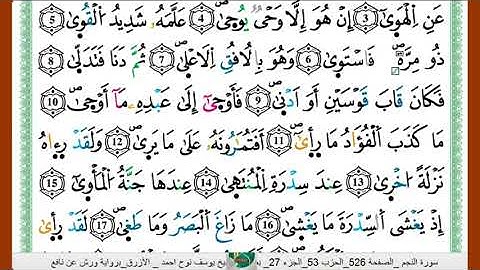 عَنِ اِ۬لْهَوَىٰٓ 3 إِنْ هُوَ إِلَّا وَحْيٞ يُوحَىٰ 4 عَلَّمَهُۥ شَدِيدُ اُ۬لْقُوَىٰ 5
ذُو مِرَّةٖ فَاسْتَوَىٰ 6 وَهُوَ بِالُافُقِ اِ۬لَاعْلَىٰ 7 ثُمَّ دَنَا فَتَدَلَّىٰ 8
فَكَانَ قَابَ قَوْسَيْنِ أَوَ اَدْنَىٰ 9 فَأَوْحَىٰٓ إِلَىٰ عَبْدِهِۦ مَآ أَوْحَىٰ 10
مَا كَذَبَ اَ۬لْفُؤَادُ مَا رَأَىٰٓ 11 أَفَتُمَٰرُونَهُۥ عَلَىٰ مَا يَرَىٰ 12 وَلَقَدْ رَءَاهُ
نَزْلَةً اُخْرَىٰ 13 عِندَ سِدْرَةِ اِ۬لْمُنتَهَىٰ 14 عِندَهَا جَنَّةُ اُ۬لْمَأْوَىٰٓ 15
إِذْ يَغْشَى اَ۬لسِّدْرَةَ مَا يَغْشَىٰ 16 مَا زَاغَ اَ۬لْبَصَرُ وَمَا طَغَىٰ 17 لَقَدْ رَأَىٰ
سورة النجم _الصفحة 526_الحزب 53_الجزء 27_ يوسف نوح احمد _الأزرق_برواية ورش عن نافع